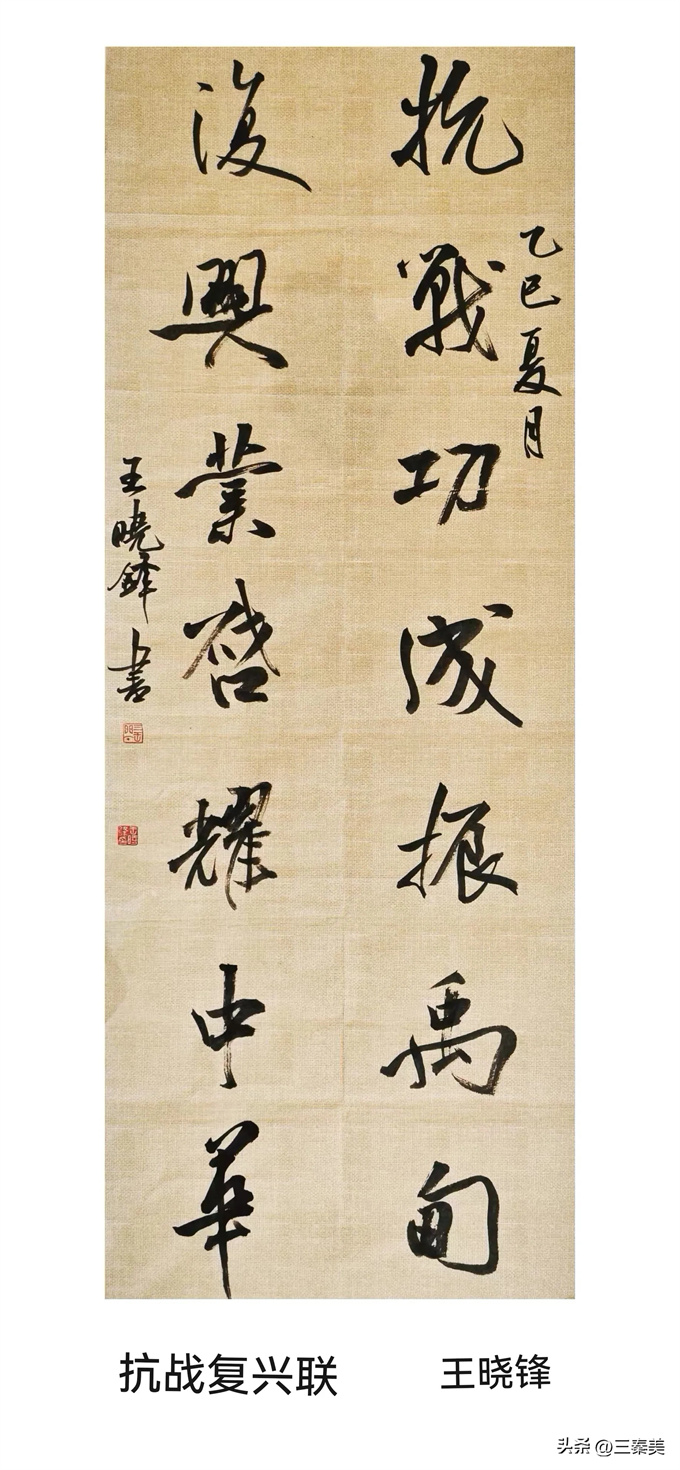 抗戰功成振禹甸
乙巳夏月
復興業啓耀中華
王曉鋒書
抗战复兴联 王晓锋
头条 @三秦美